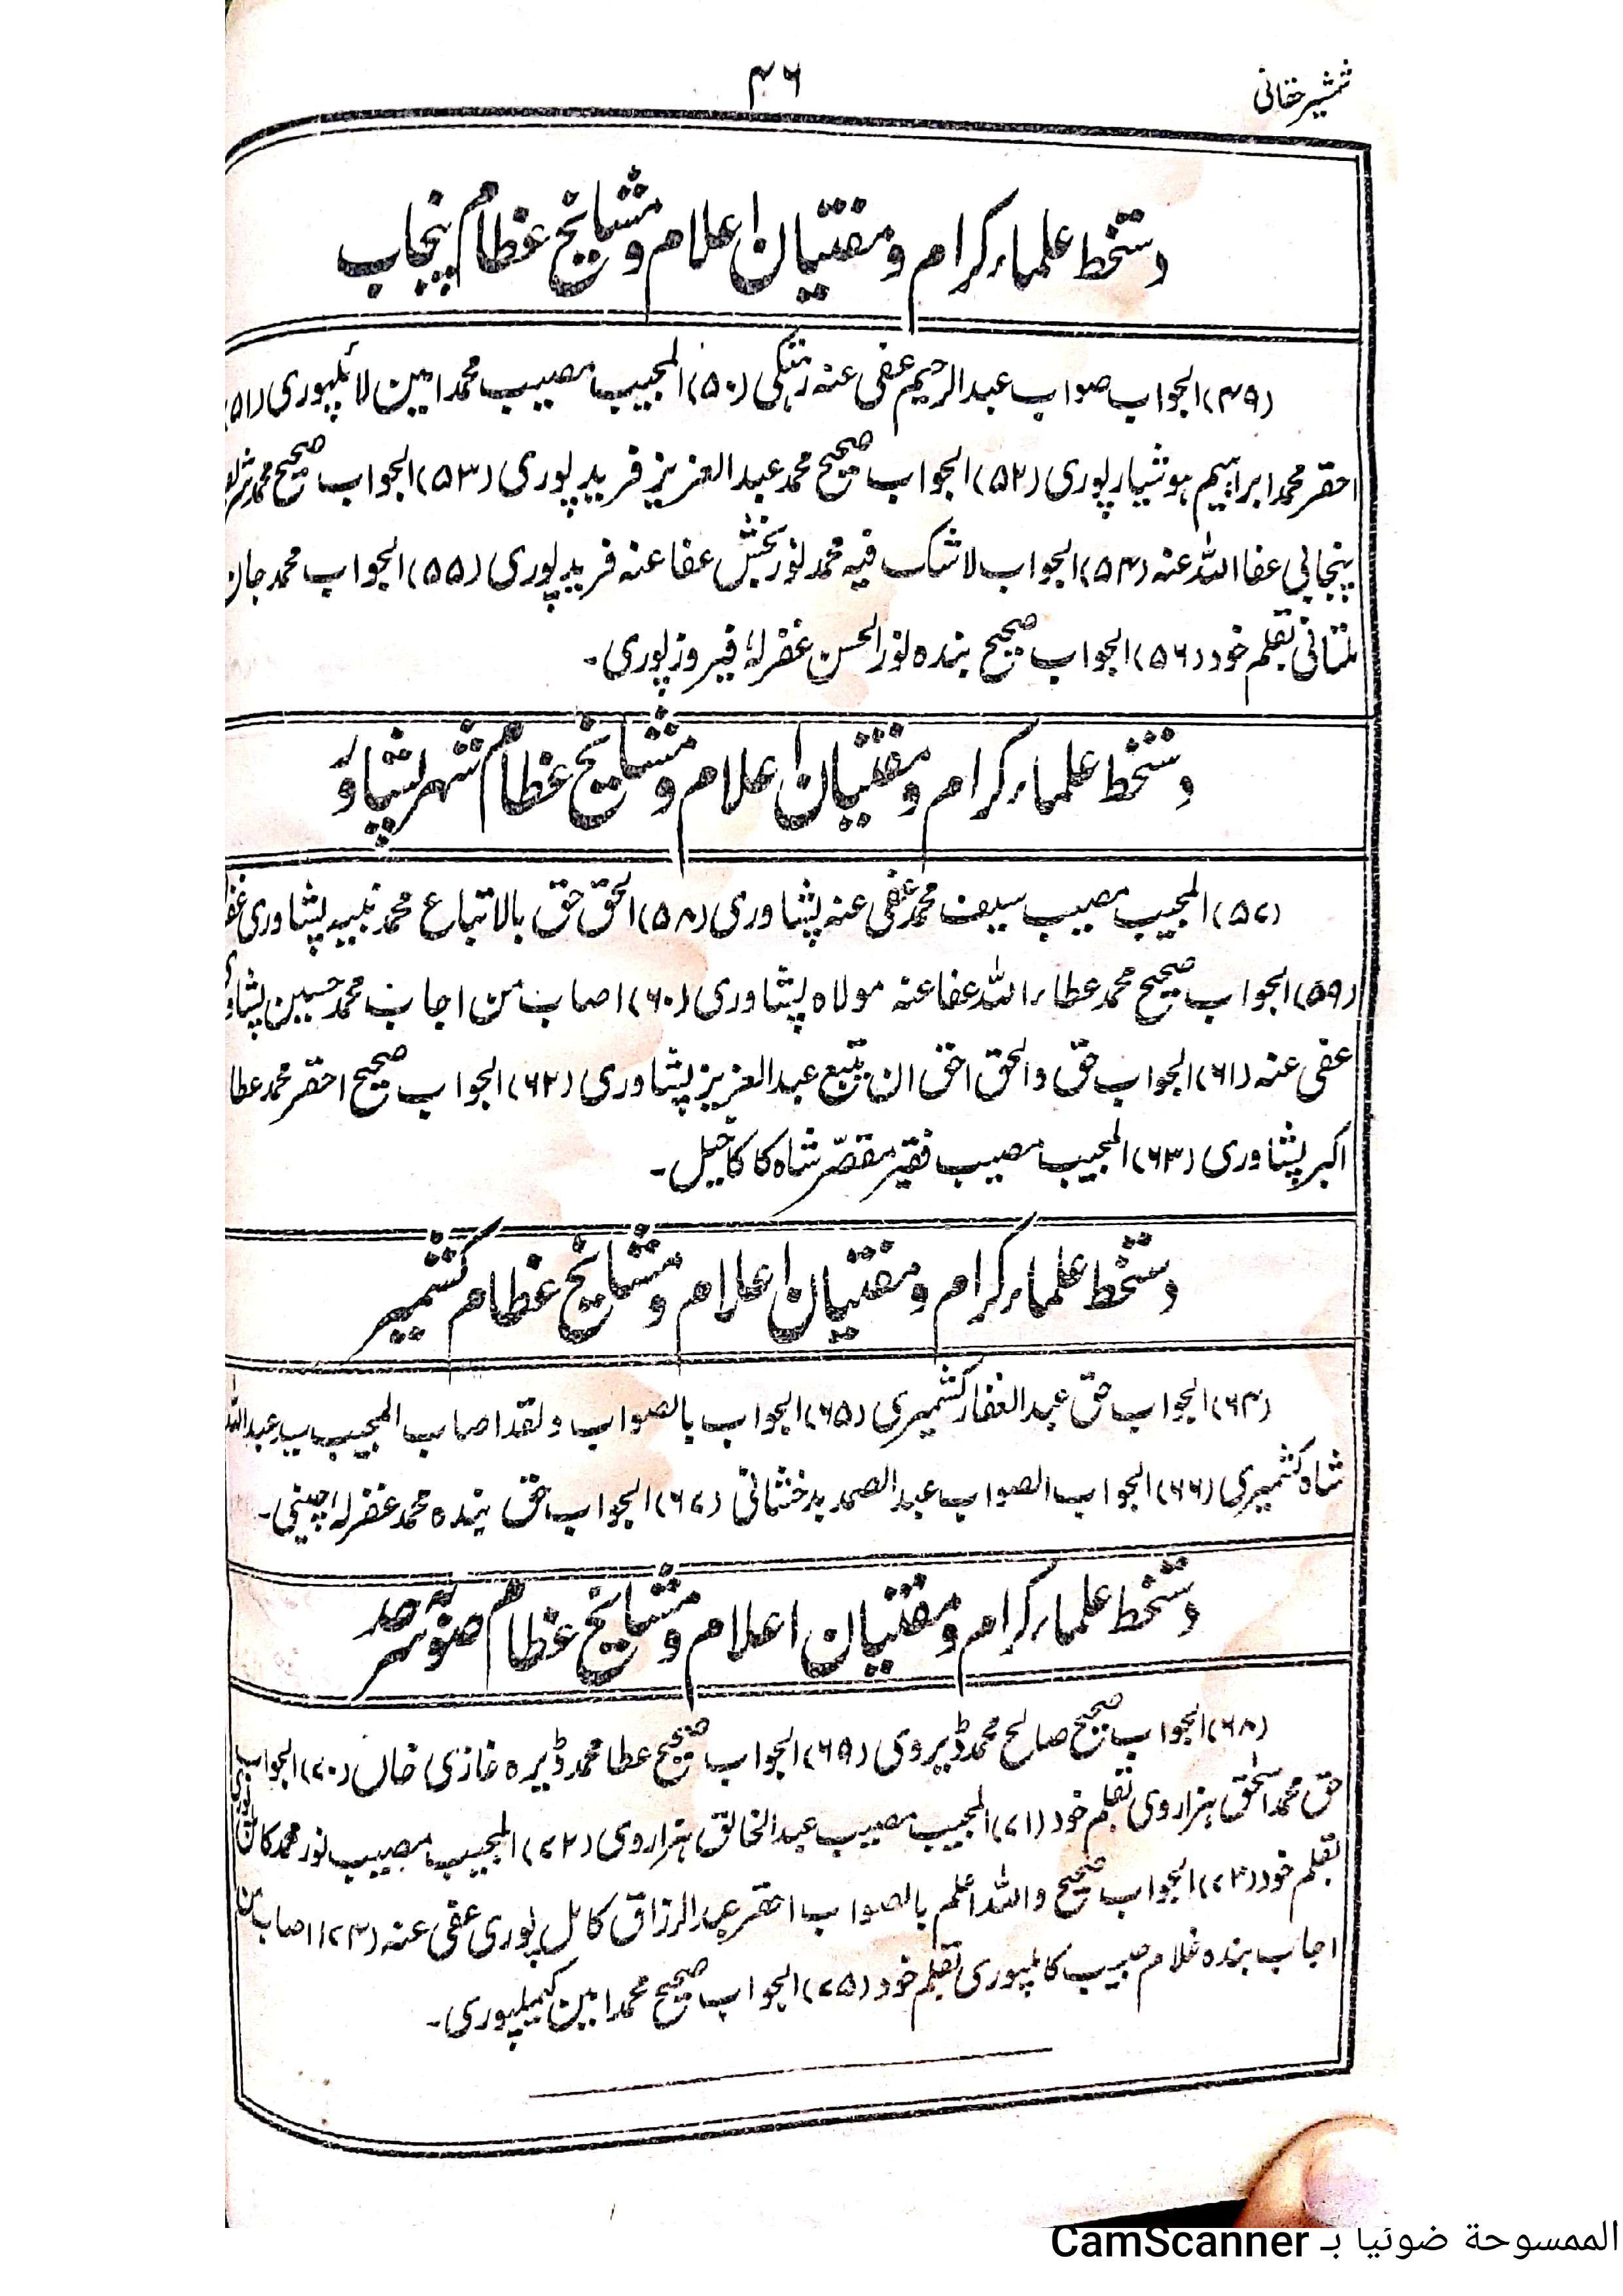 شمشیر حقانی
۴۶
دستخط علماء کرام و مفتیان اعلام و مشایخ عظام پنجاب
(۴۹) الجواب صواب عبدالرحیم عفی عنہ (۵۰) المجیب مصیب محمد امین لائلپوری (۵۱)
احقر محمد ابراہیم ہوشیارپوری (۵۲) الجواب صحیح محمد عبدالعزیز فریدپوری (۵۳) الجواب صحیح محمد
پنجابی عفا اللہ عنہ (۵۴) الجواب لاشک فیہ محمد نور بخش عفا عنہ فریدپوری (۵۵) الجواب محمد جان
ملتانی بقلم خود (۵۶) الجواب صحیح بندہ نورالحسن غفرلہٗ فیروزپوری۔
دستخط علماء کرام و مفتیان اعلام و مشایخ عظام شہر پشاور
(۵۷) المجیب مصیب سیف محمد عفی عنہ پشاوری (۵۸) الحق حق بالاتباع محمد نبیہ پشاوری
(۵۹) الجواب صحیح محمد عطاء اللہ عفا عنہ مولاہ پشاوری (۶۰) اصاب من اجاب محمد حسین پشاوری
عفی عنہ (۶۱) الجواب حق والحق احق ان یتبع عبدالعزیز پشاوری (۶۲) الجواب صحیح احقر محمد عطا
اکبر پشاوری (۶۳) المجیب مصیب فقیر مقصّر شاہ کاکاخیل۔
دستخط علماء کرام و مفتیان اعلام و مشایخ عظام کشمیر
(۶۴) الجواب حق عبدالغفار کشمیری (۶۵) الجواب بالصواب ولقد اصاب المجیب سید عبداللہ
شاہ کشمیری (۶۶) الجواب الصواب عبدالصمد بدخشانی (۶۷) الجواب حق بندہ محمد غفرلہ چینی۔
دستخط علماء کرام و مفتیان اعلام و مشایخ عظام صوبہ سرحد
(۶۸) الجواب صحیح صالح محمد ڈیروی (۶۹) الجواب صحیح عطا محمد ڈیرہ غازی خاں (۷۰) الجواب
حق محمد اسحٰق ہزاروی بقلم خود (۷۱) المجیب مصیب عبدالخالق ہزاروی (۷۲) المجیب مصیب نور محمد
بقلم خود (۷۳) الجواب صحیح واللہ اعلم بالصواب احقر عبدالرزاق کامل پوری عفی عنہ (۷۴) اصاب من
اجاب بندہ غلام حبیب کاملپوری بقلم خود (۷۵) الجواب صحیح محمد امین کیمبلپوری۔
الممسوحة ضوئيا بـ CamScanner